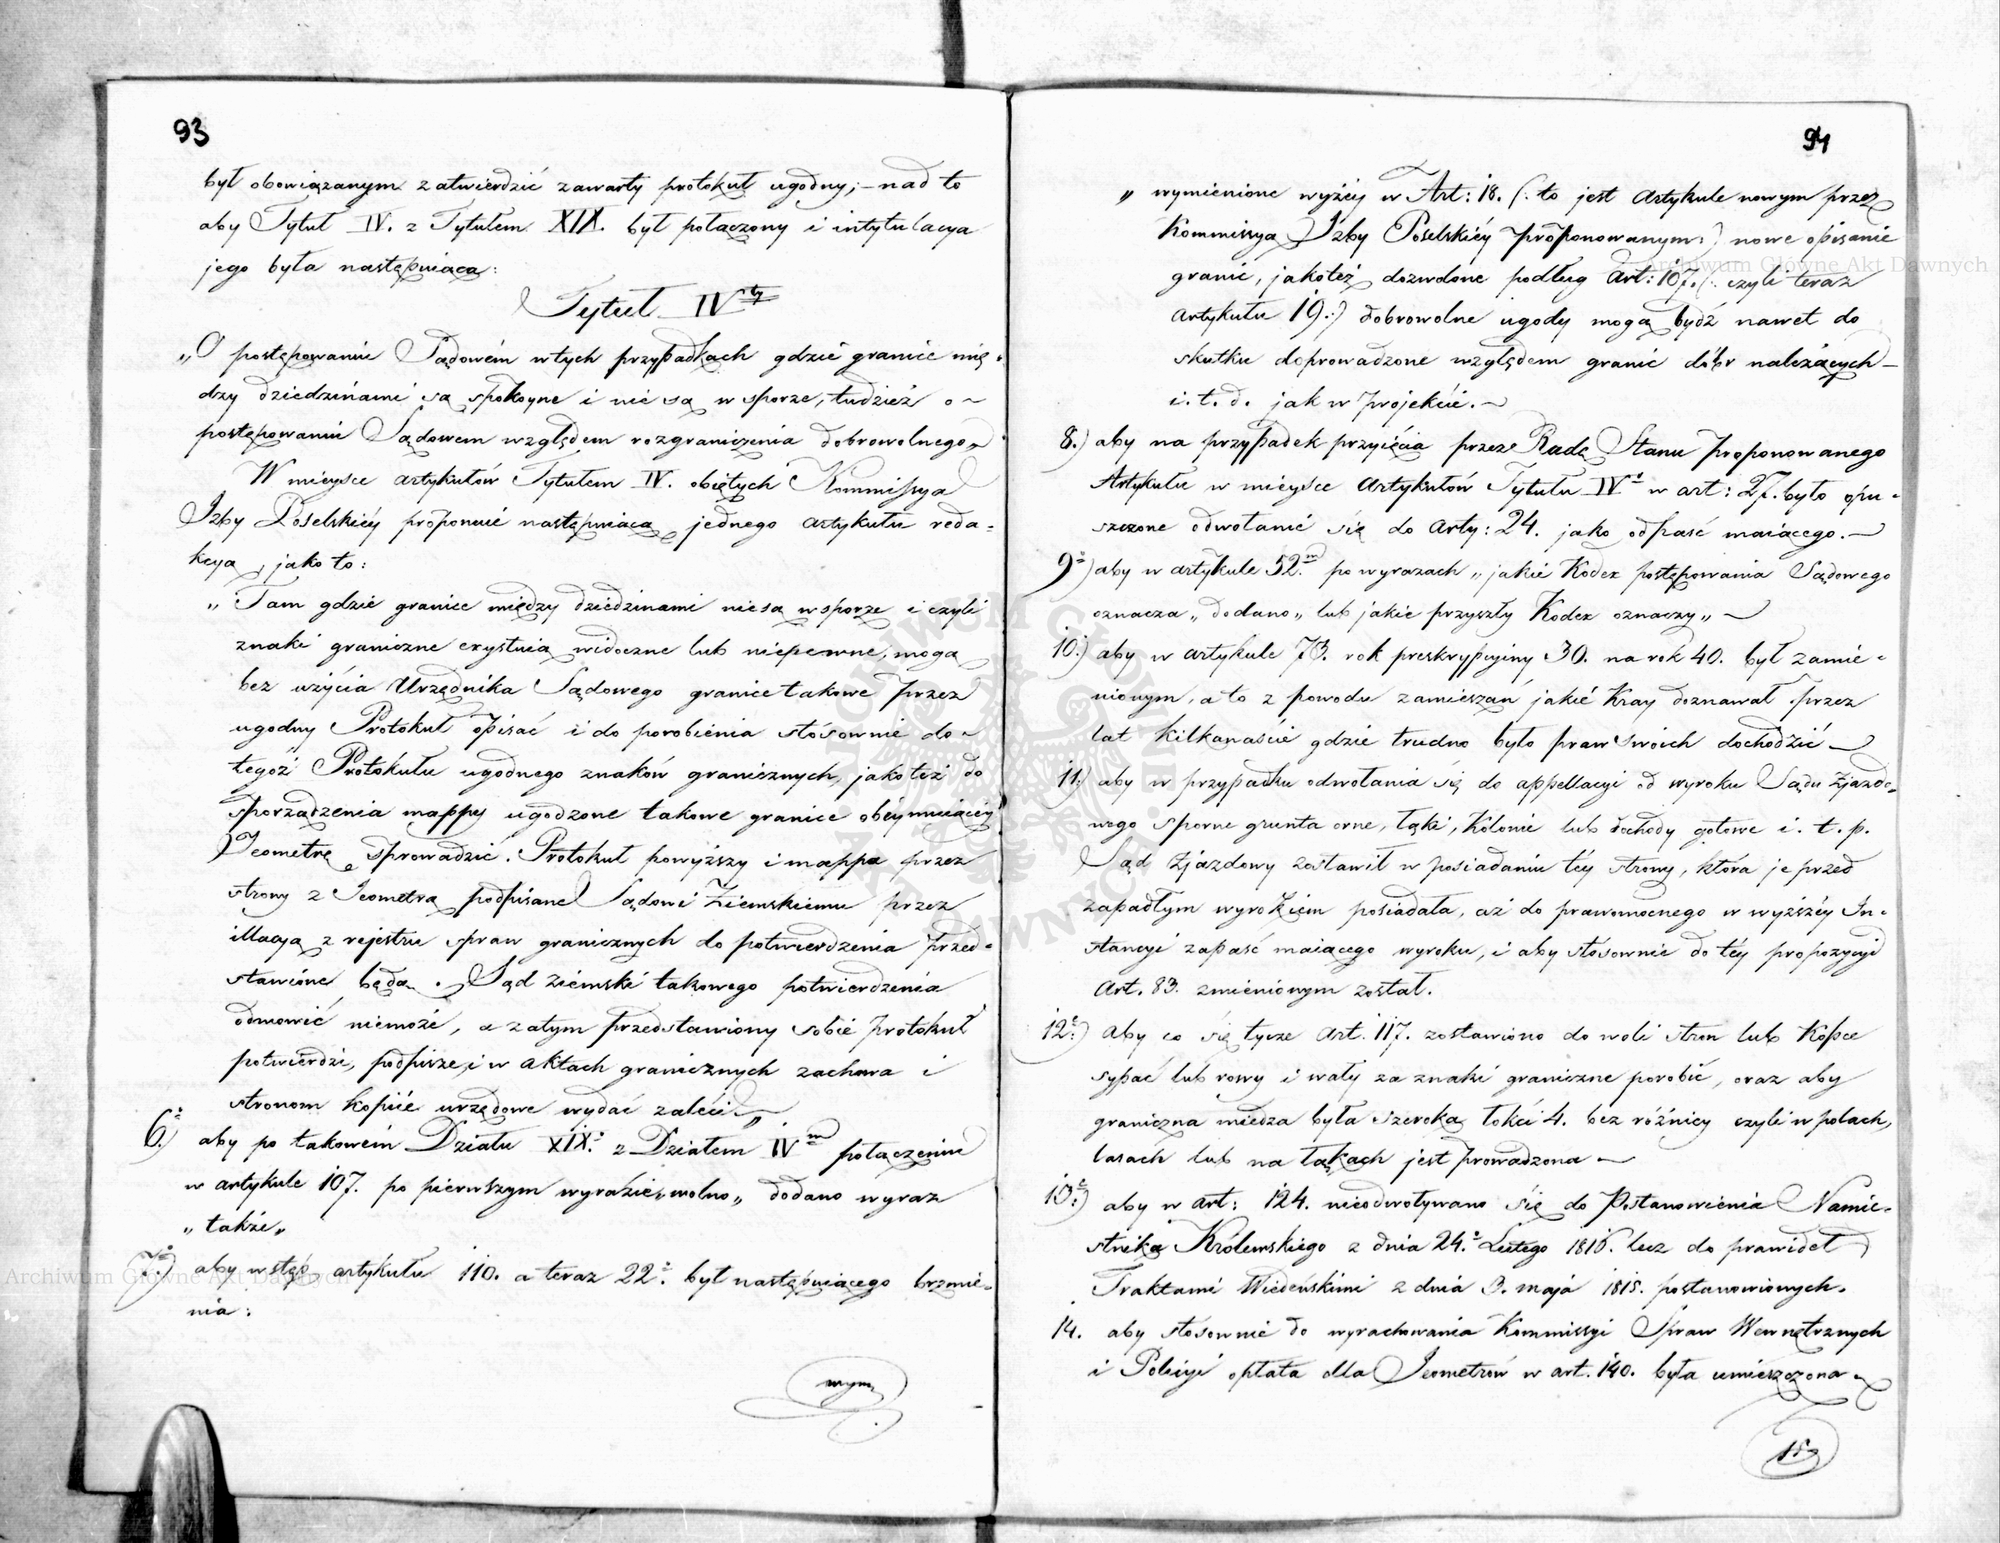 93
był obowiązanym zatwierdzić zawarty protokuł ugodny; – nad to
aby Tytuł IV. z Tytułem XIX. był połączony i intytulacya
jego była następuiąca:
Tytuł IVty
„O postępowaniu Sądowém w tych przypadkach gdzie granice mię-
dzy dziedzinami są spokoyne i nie są w sporze, tudzież o
postępowaniu Sądowem względem rozgraniczenia dobrowolnego„
W mieysce artykułów Tytułem IV. obiętych Kommissya
Izby Poselskiéy proponuie następuiącą jednego artykułu reda-
kcyą, jako to:
„Tam gdzie granice między dziedzinami nie są w sporze i czyli
znaki graniczne exystuią widoczne lub niepewne, mogą
bez użycia Urzędnika Sądowego granice takowe przez
ugodny Protokuł opisać i do porobienia stósownie do
tegoż Protokułu ugodnego znaków granicznych, jakoteż do
sporządzenia mappy ugodzone takowe granice obéymuiącéy
Jeometrę sprowadzić. Protokuł powyższy i mappa przez
strony z Jeometrą podpisane Sądowi Ziemskiemu przez
illacyą z rejestru spraw granicznych do potwierdzenia przed-
stawione będą. Sąd ziemski takowego potwierdzenia
odmowić niemoże, a zatym przedstawiony sobie protokuł
potwierdzi, podpisze, i w aktach granicznych zachowa i
stronom kopiie urzędowe wydać zaleci„
6.) aby po takowém Działu XIX. z Działem IVm połączeniu
w artykule 107. po pierwszym wyrazie „wolno„ dodano wyraz
„także„
7.) aby wstęp artykułu 110. a teraz 22. był następuiącego brzmie-
nia:
wym
94
„ wymienione wyżéy w Art: 18. (: to jest artykule nowym przez
Kommissyą Izby Poselskiéy proponowanym:) nowe opisanie
granic, jakoteż dozwolone podług art: 107. (: czyli teraz
artykułu 19.:) dobrowolne ugody mogą bydź nawet do
skutku doprowadzone względem granic dóbr należących –
i. t. d. jak w projekcie. –
8.) aby na przypadek przyięcia przez Radę Stanu proponowanego
Artykułu w mieysce artykułów Tytułu IV w art: 27. było opu-
szczone odwołanie się do arty: 24. jako odpaść maiącego. –
9) aby w artykule 52.m po wyrazach „jakie Kodex postępowania Sądowego
oznacza„ dodano „lub jakie przyszły Kodex oznaczy„ –
10.) aby w artykule 73. rok preskrypcyiny 30. na rok 40. był zamie-
nionym, a to z powodu zamieszań jakie Kray doznawał przez
lat kilkanaście gdzie trudno było praw swoich dochodzić –
11.) aby w przypadku odwołania się do appellacyi od wyroku Sądu Zjazdo-
wego sporne grunta orne, łąki, kolonie lub dochody gotowe i. t. p.
Sąd Zjazdowy zostawił w posiadaniu téy strony, która je przed
zapadłym wyrokiem posiadała, aż do prawomocnego w wyższéy In-
stancyi zapaść maiącego wyroku, i aby stósownie do téy propozycyi
art. 83. zmienionym został.
12.) aby co się tycze art. 117. zostawiono do woli stron lub kopce
sypać lub rowy i wały za znaki graniczne porobić, oraz aby
graniczna miedza była szeroka łokci 4. bez różnicy czyli w polach,
lasach lub na łąkach jest prowadzona –
13.) aby w art: 124. nieodwoływano się do Postanowienia Namie-
stnika Królewskiego z dnia 24. Lutego 1816. lecz do prawideł
Traktami Wiedeńskimi z dnia 3. maja 1815. postanowionych.
14. aby stosownie do wyrachowania Kommissyi Spraw Wewnętrznych
i Policyi opłata dla Jeometrów w art. 140. była umieszczona
Archiwum Główne Akt Dawnych
Archiwum Główne Akt Dawnych